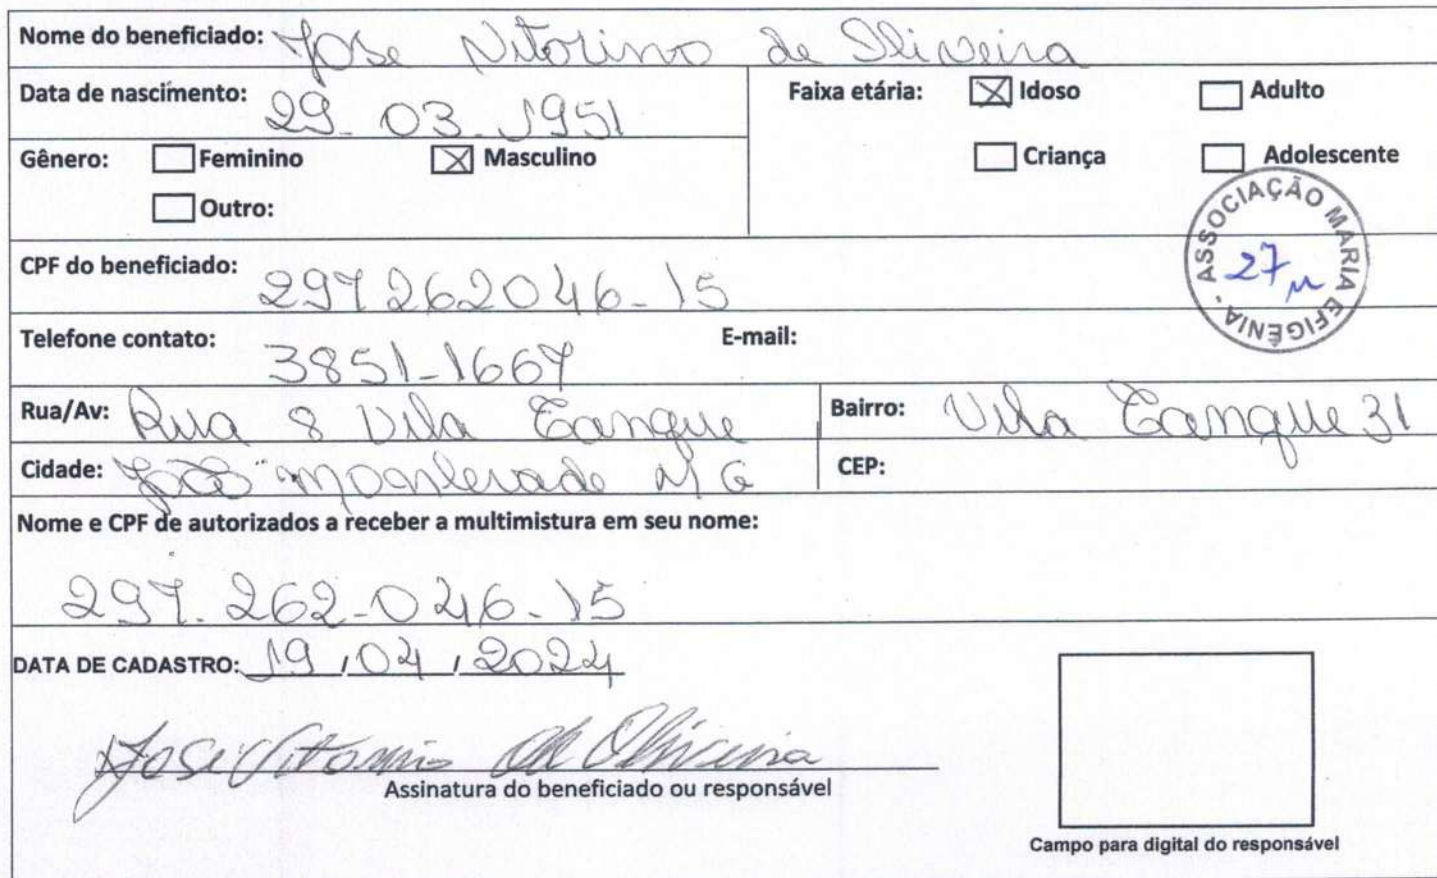 Nome do beneficiado: Jose Vitorino de Oliveira
Data de nascimento: 29-03-1951
Faixa etária: ☒ Idoso ☐ Adulto
Gênero: ☐ Feminino ☒ Masculino
☐ Criança ☐ Adolescente
☐ Outro:
ASSOCIAÇÃO MARIA EFIGÊNIA -
27
CPF do beneficiado: 297262046-15
Telefone contato: 3851-1667 E-mail:
Rua/Av: Rua 8 Vila Tanque Bairro: Vila Tanque 31
Cidade: João Monlevade MG CEP:
Nome e CPF de autorizados a receber a multimistura em seu nome:
297-262-046-15
DATA DE CADASTRO: 19/04/2024
Jose Vitorino de Oliveira
Assinatura do beneficiado ou responsável
Campo para digital do responsável